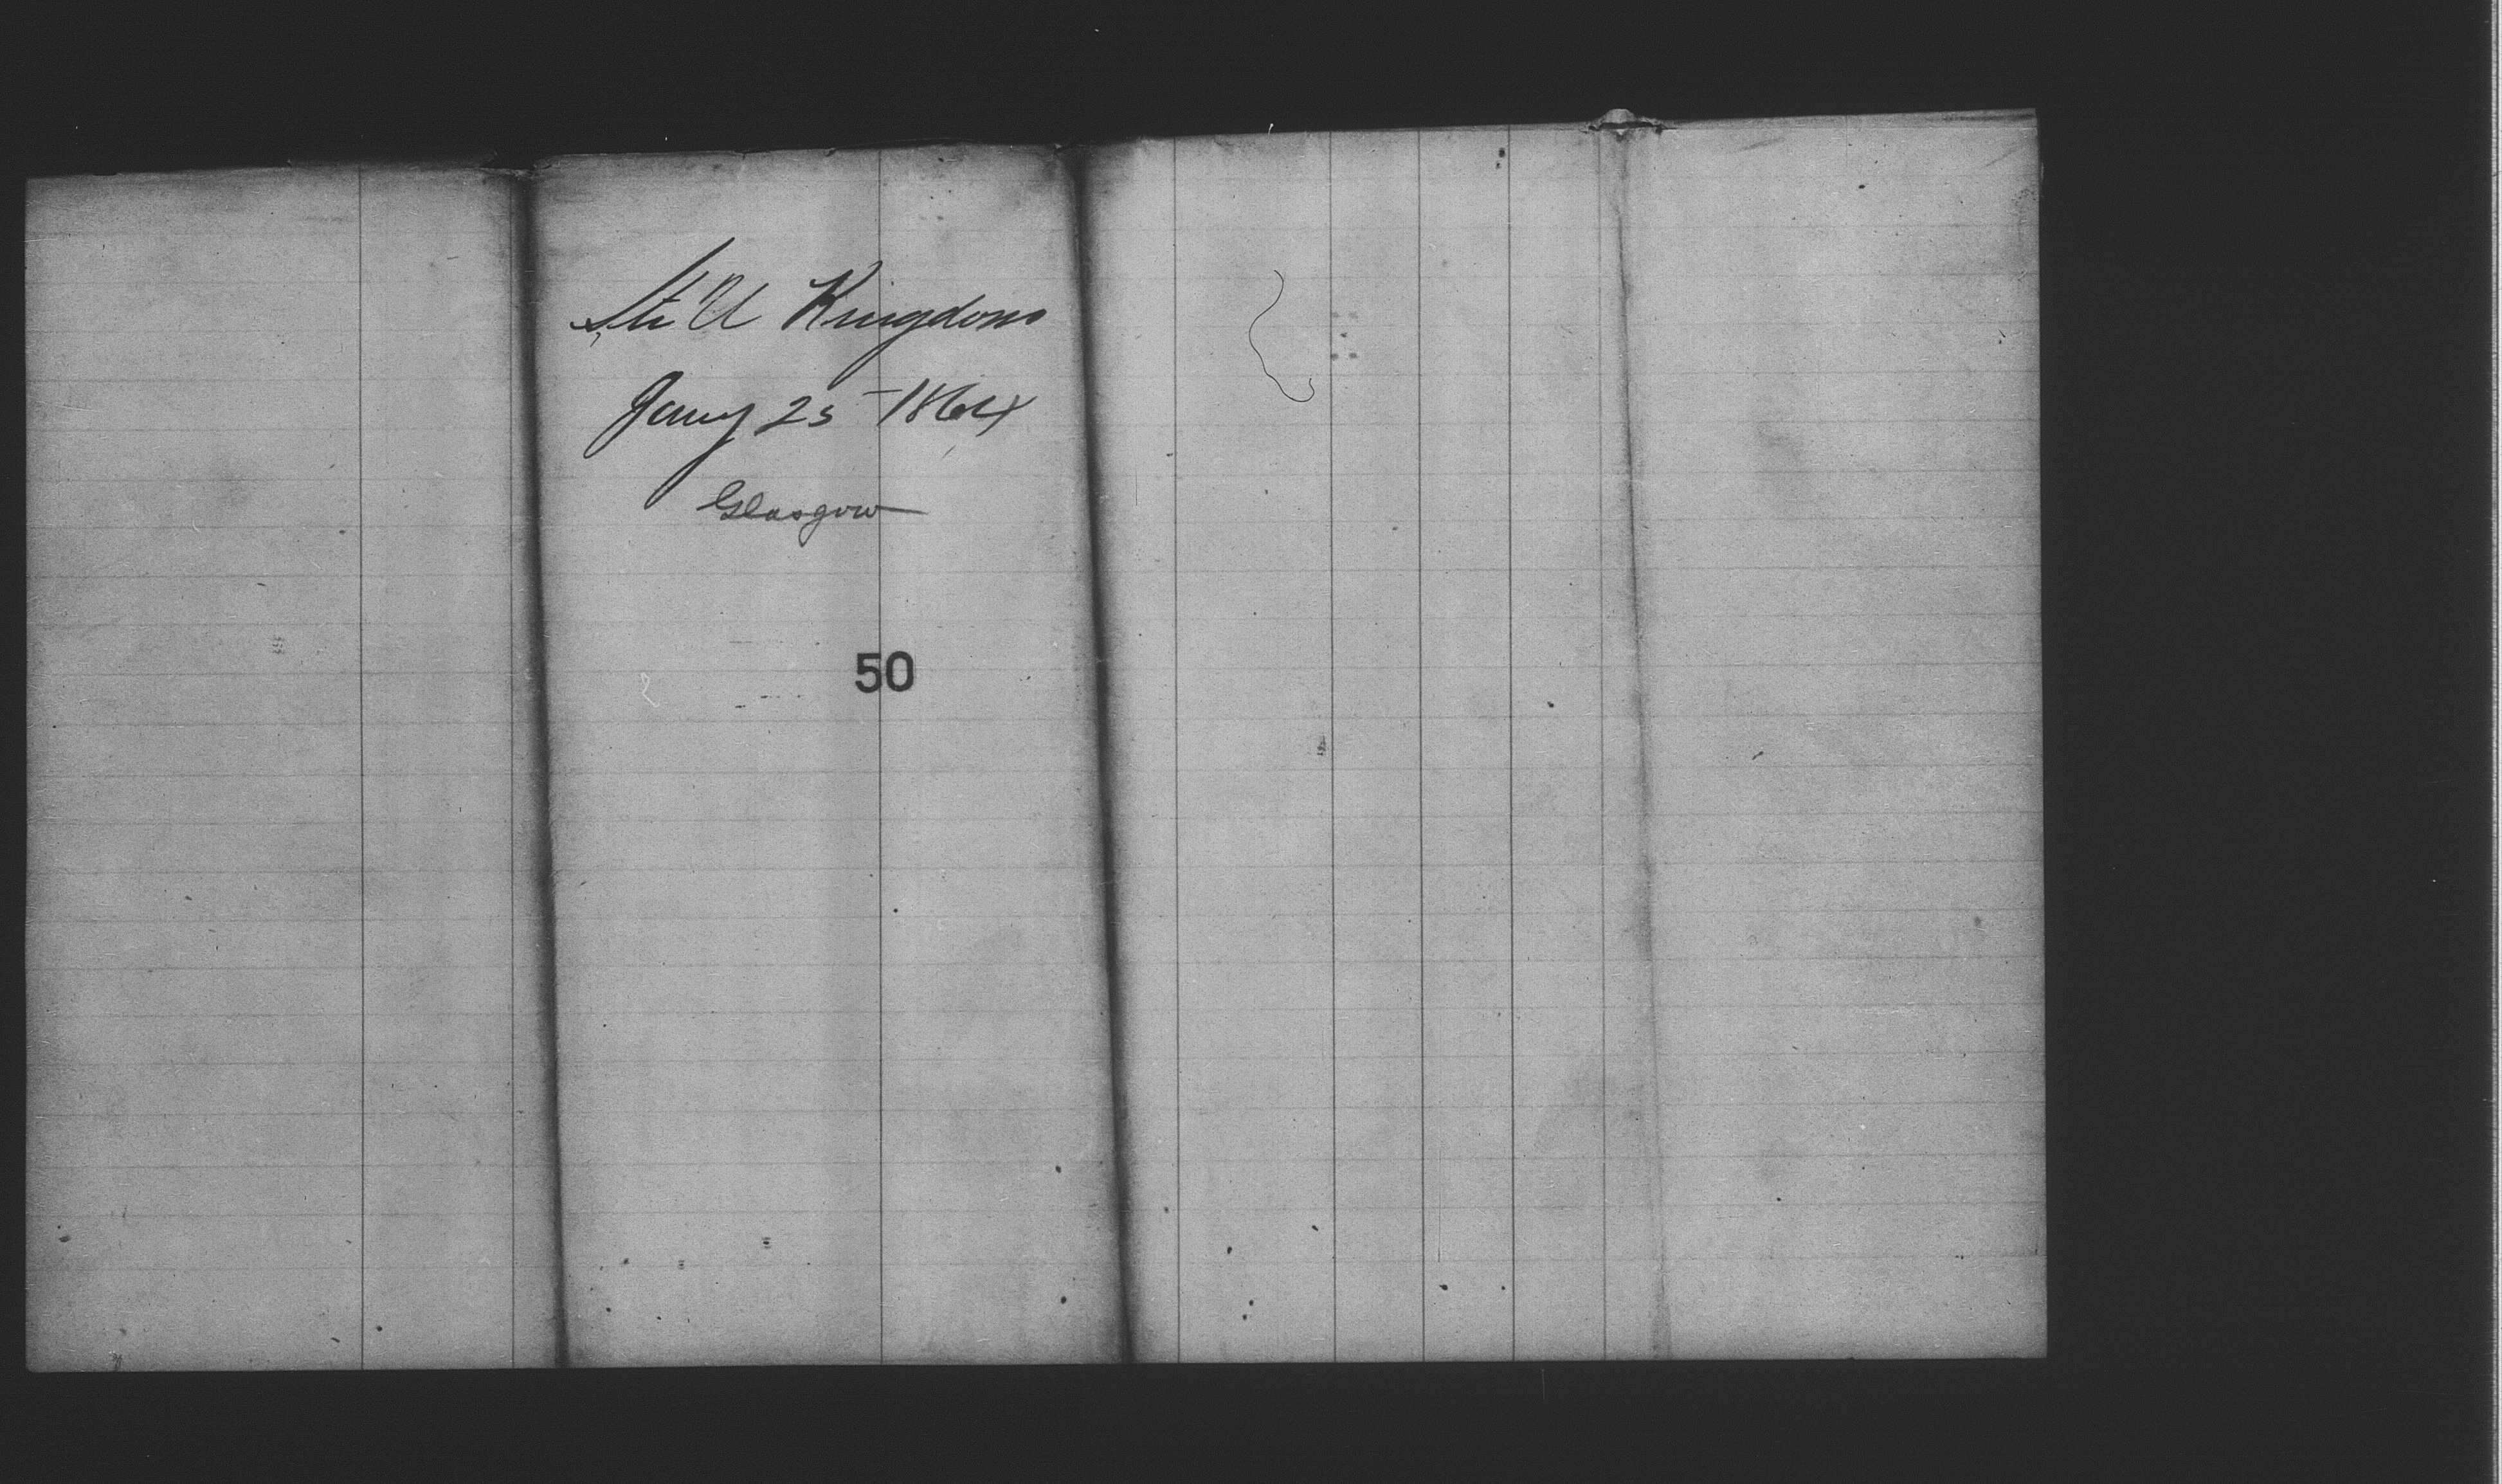 Str U Kingdom
Jany 25 - 1864
Glasgow
50